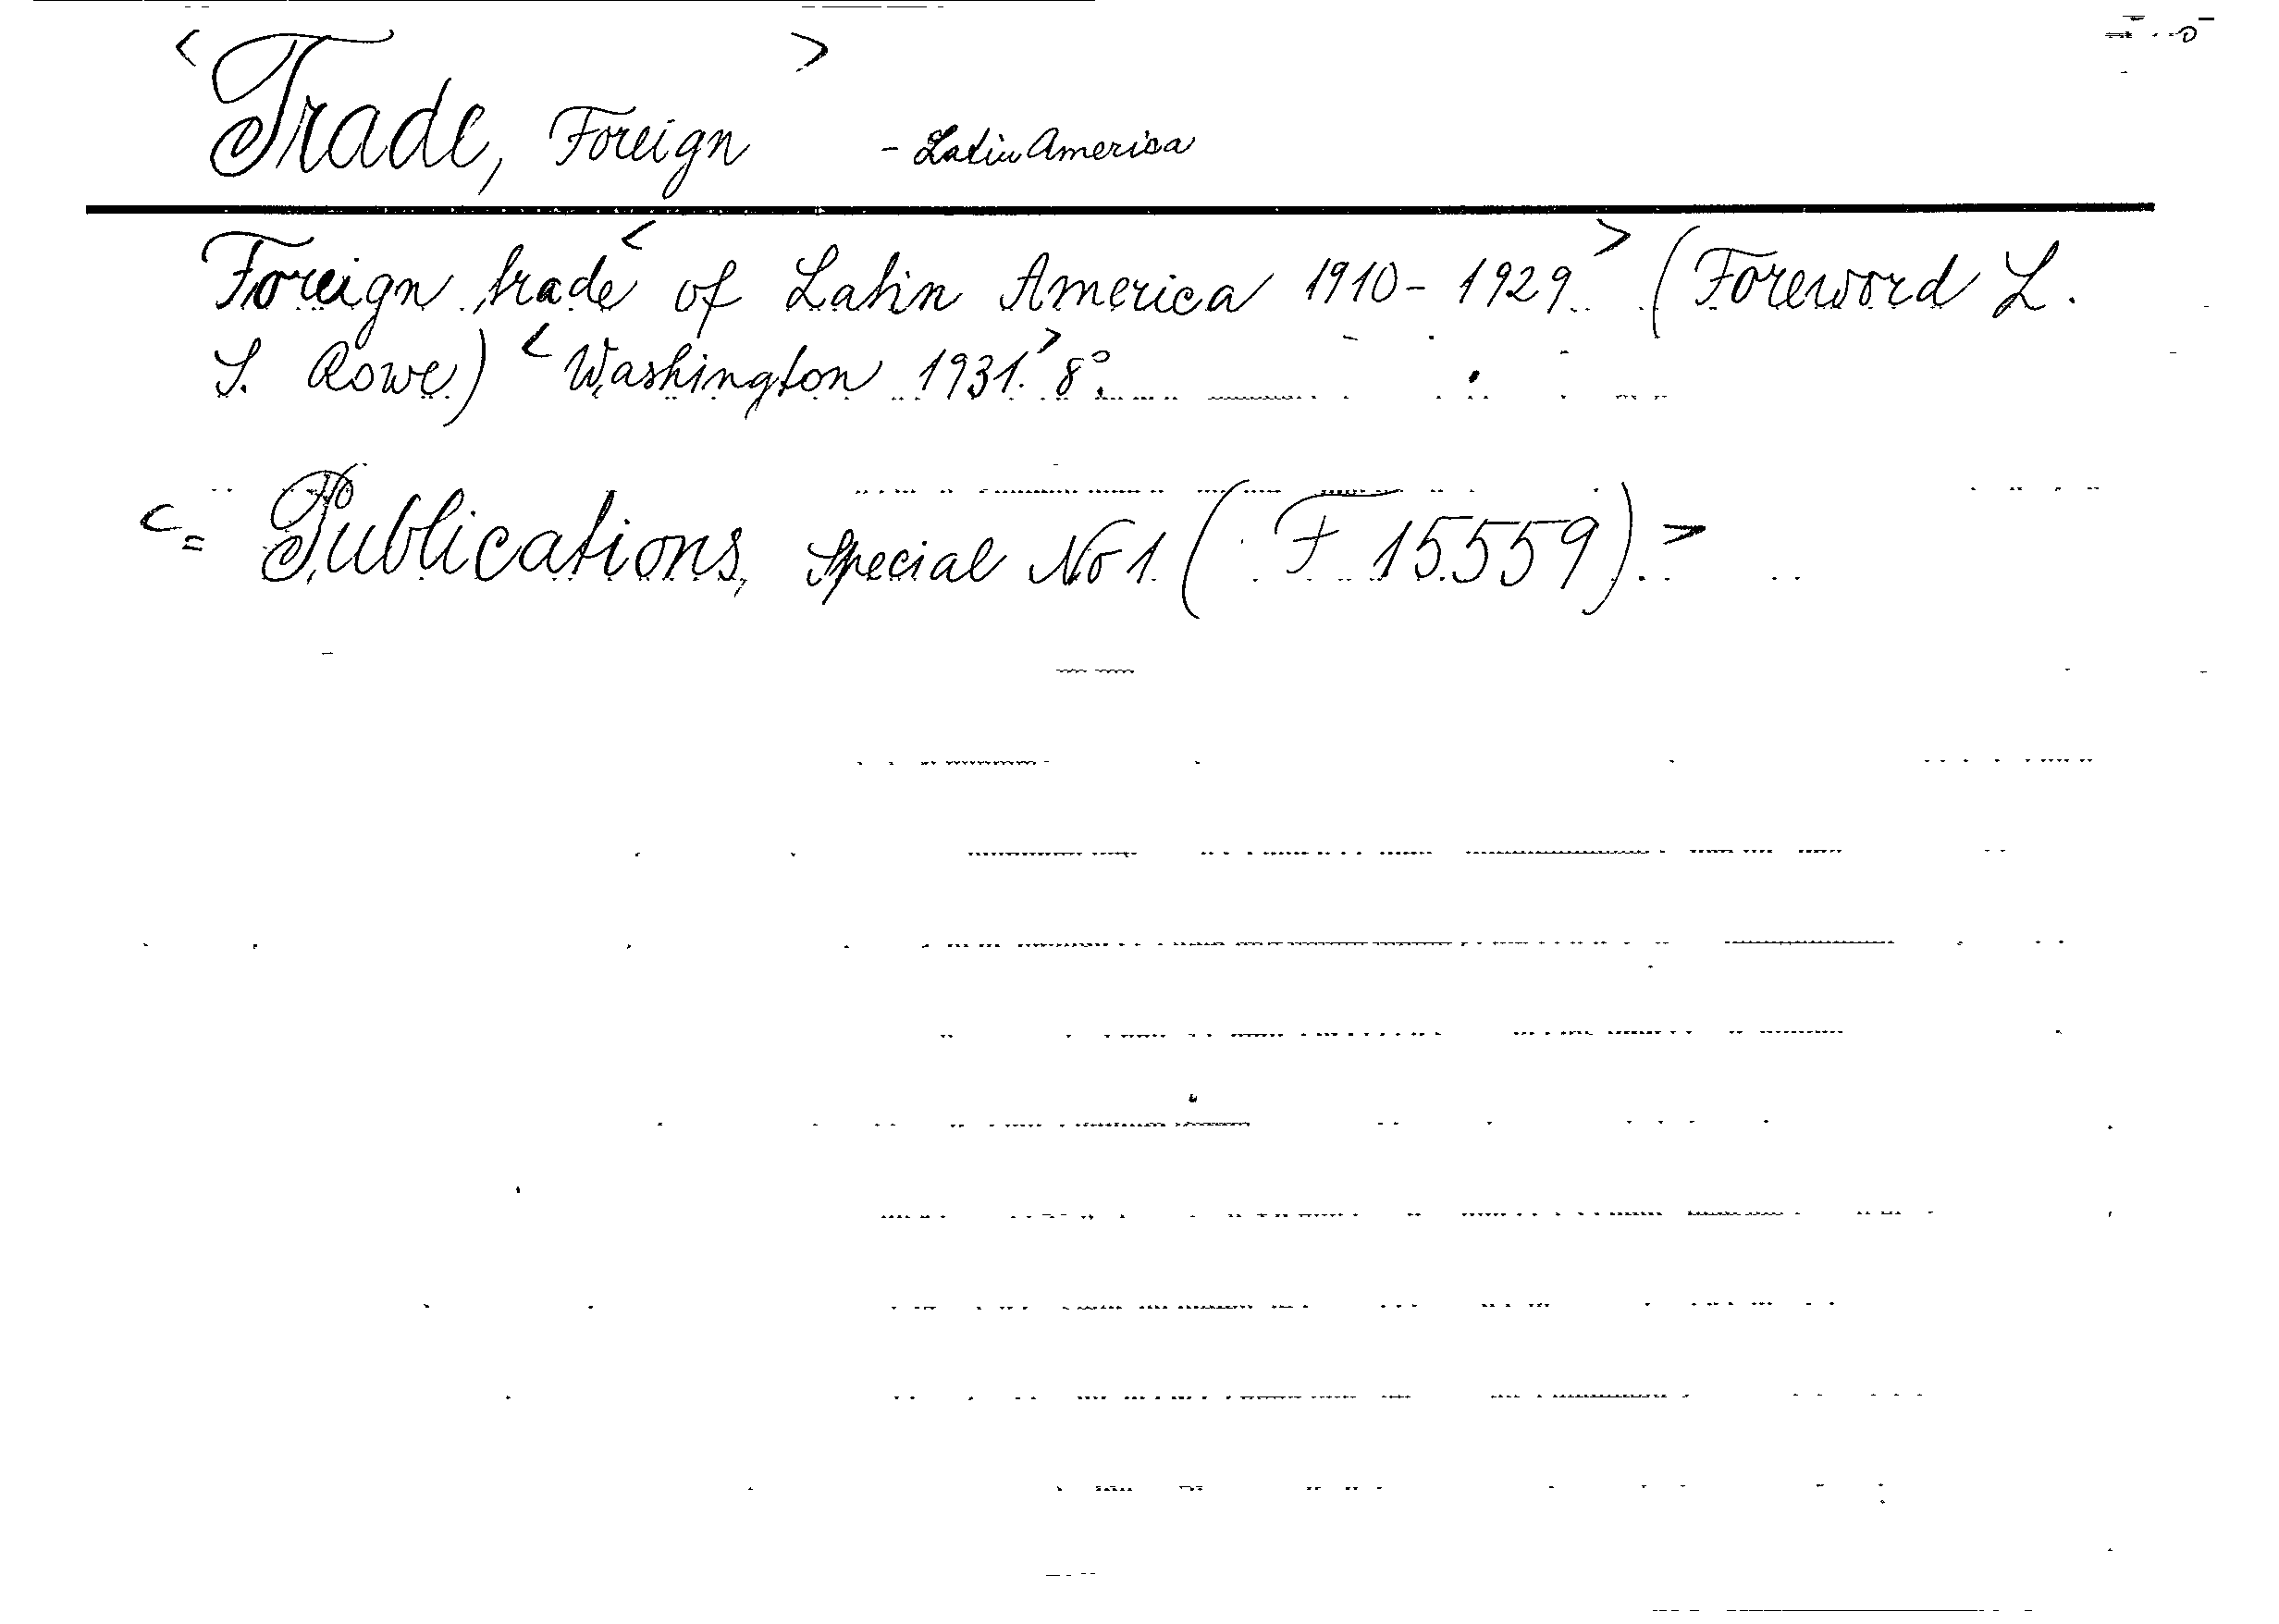 <Trade, Foreign> - Latin America
Foreign trade <of Latin America 1910-1929> (Foreword L.
S. Rowe) <Washington 1931.> 8°.
<= Publications, Special No 1 (F 15559).>